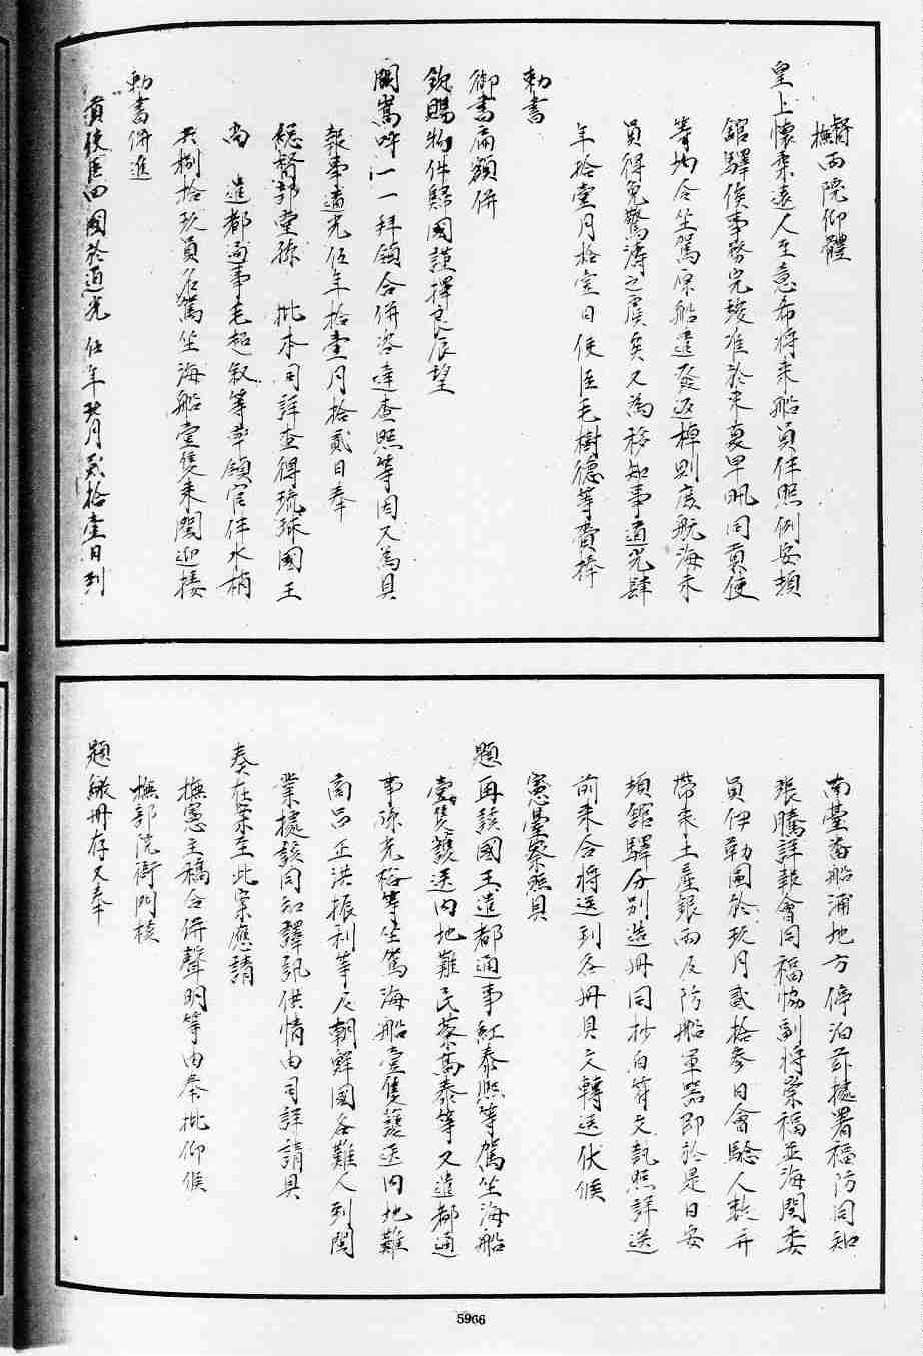 督撫兩院仰體
皇上懷柔遠人至意希將來船員伴照例安頓
館驛俟事務完竣准於來夏早汛同貢使
等均合坐駕原船遣發返棹則度航海末
員得免驚濤之虞矣又為移知事道光肆
年拾壹月拾壹日使臣毛樹德等賫捧
勅書
御書匾額併
欽賜物件歸國謹擇良辰望
闕嵩呼一一拜領合併咨達查照等因又為具
報事道光伍年拾壹月拾貳日奉
總督部堂孫 批本司詳查得琉球國王
尚 遣都通事毛超敘等率領官伴水梢
共捌拾玖員名駕坐海船壹隻來閩迎接
勅書併進
貢使臣回國於道光伍年玖月貳拾壹日到
南臺番船浦地方停泊茲據署福防同知
張騰詳報會同福協副將崇福並海關委
員伊勒圖於玖月貳拾參日會驗人數并
帶來土產銀兩及防船軍器即於是日安
頓館驛分別造冊同抄白符文執照詳送
前來合將送到各冊具文轉送伏候
憲臺察照具
題再該國王遣都通事紅泰熙等駕坐海船
壹隻護送內地難民蔡高泰等又遣都通
事孫光裕等坐駕海船壹隻護送內地難
商呂正洪振利等及朝鮮國各難人到閩
業據該同知譯訊供情由司詳請具
奏在案至此案應請
撫憲主稿合併聲明等由奉批仰候
撫部院衙門核
題繳冊存又奉
5966